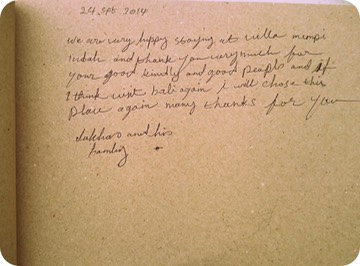 24 Spt 2014
we are very happy staying at villa mimpi
indah and thank you very much for
your good kindly and good peapls and if
I think visit bali again I will chose this
place again many thanks for you
and his
family